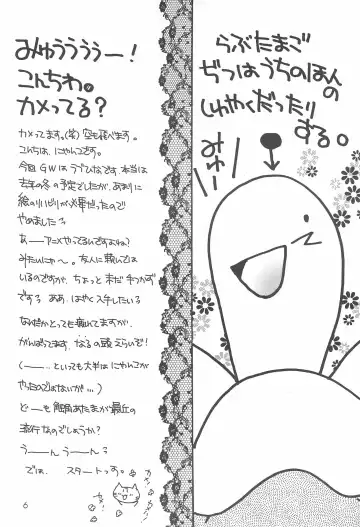 みゅうううう－！
こんちわ。
カメってる？
カメってます。(笑) 空も飛べます。
こんちは、にゃんこです。
今回GWはラブひなです、本当は
去年の冬の予定でしたが、あまりに
絵のリハビリが必要だったので
やめました？
あ－－アニメやってるんですよね？
みたいにゃ～。友人に頼んでは
いるのですが、ちょっと まだ手つかず
です？ ああ、はやくスキしたいる
なんだかとっても壊れてますが、
がんばってます、なるの頭えらいぞ！
(－－‥といっても大半は にゃんこが
やったのではないが…)
ど－も 触角あたまが最近の
流行なのでしょうか？
う－ん う－ん？
では、スタートっす。
カメ－
カメ－！
6
らぶたまご
ぢつはうちのほんの
しゅやくだったり
する。
みゅ－